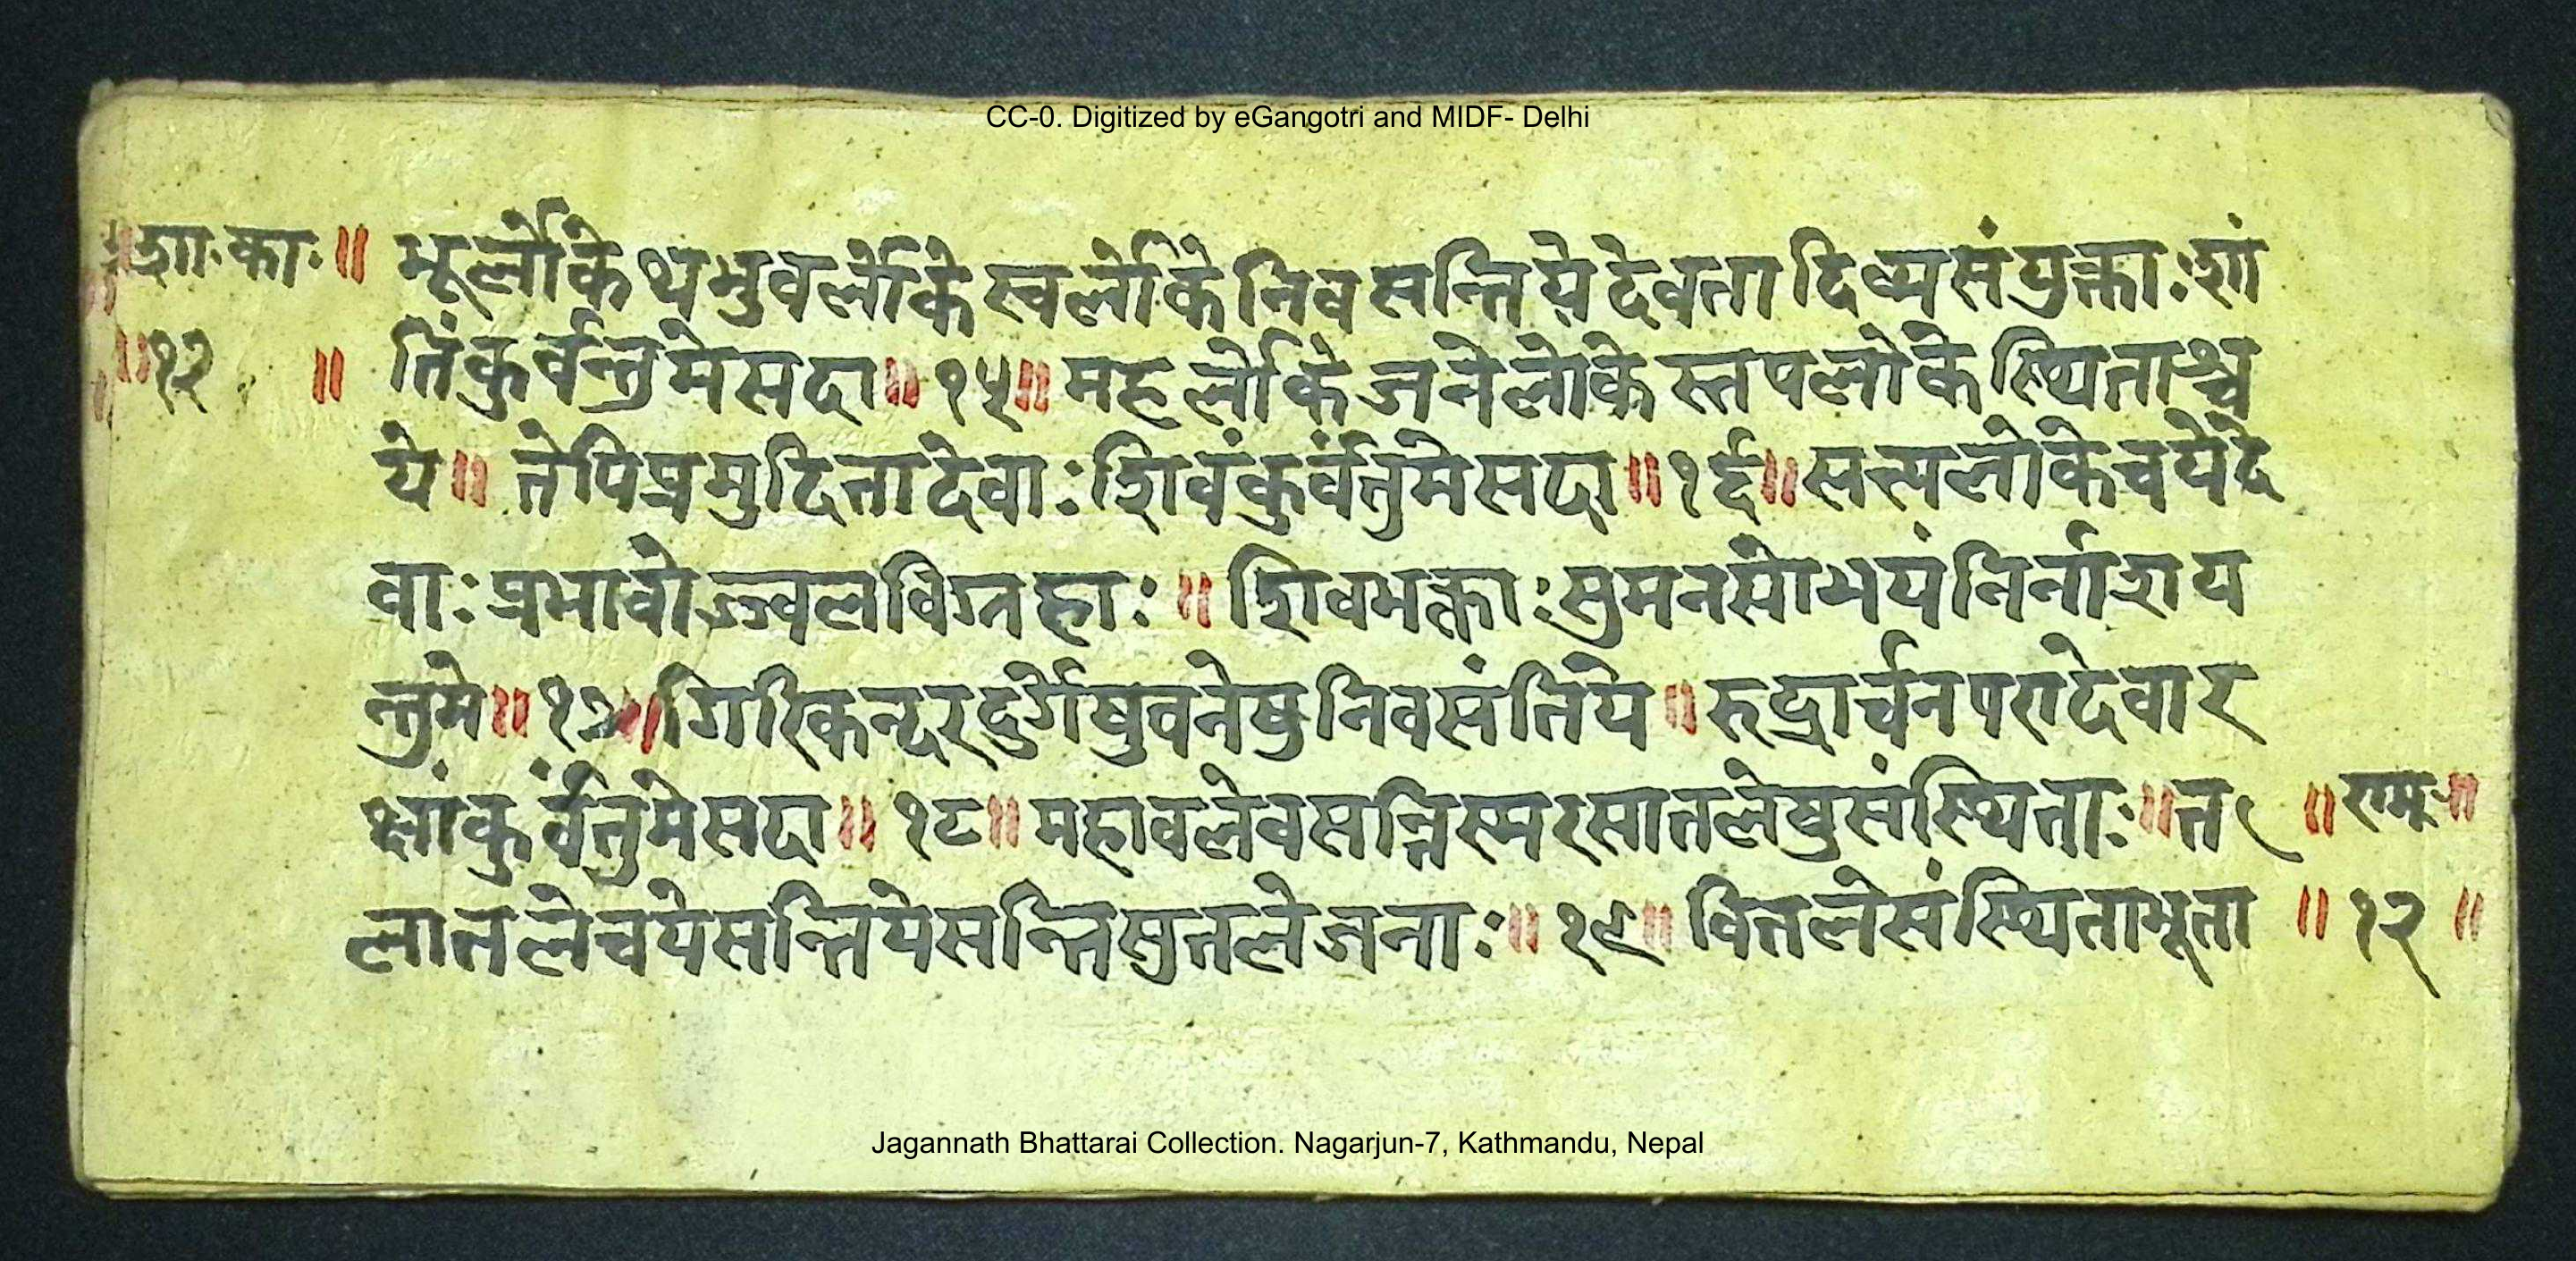 CC-0. Digitized by eGangotri and MIDF- Delhi
॥शा.का.॥ भूर्लोकेथभुवर्लोकेस्वर्लोकेनिवसन्तियेदेवतादिव्यसंयुक्ताःशां
॥१२ ॥ तिंकुर्वन्तुमेसदा॥१५॥महर्लोकेजनेलोकेस्तपलोकेस्थिताश्च
ये॥तेपिप्रमुदितादेवाःशिवंकुर्वंतुमेसदा॥१६॥सत्यलोकेचयेदे
वाःप्रभावोज्ज्वलविग्नहाः॥शिवभक्ताःसुमनसोभयंनिर्नाशय
न्तुमे॥१७॥गिरिकन्दरदुर्गेषुवनेषुनिवसंतिये॥रुद्रार्चनपरादेवार
क्षांकुर्वंतुमेसदा॥१८॥महावलेवसन्निस्मरसातलेषुसंस्थिताः॥त ॥रामः॥
लातलेचयेसन्तियेसन्तिसुतलेजनाः॥१९॥वितलेसंस्थिताभूता ॥१२॥
Jagannath Bhattarai Collection. Nagarjun-7, Kathmandu, Nepal